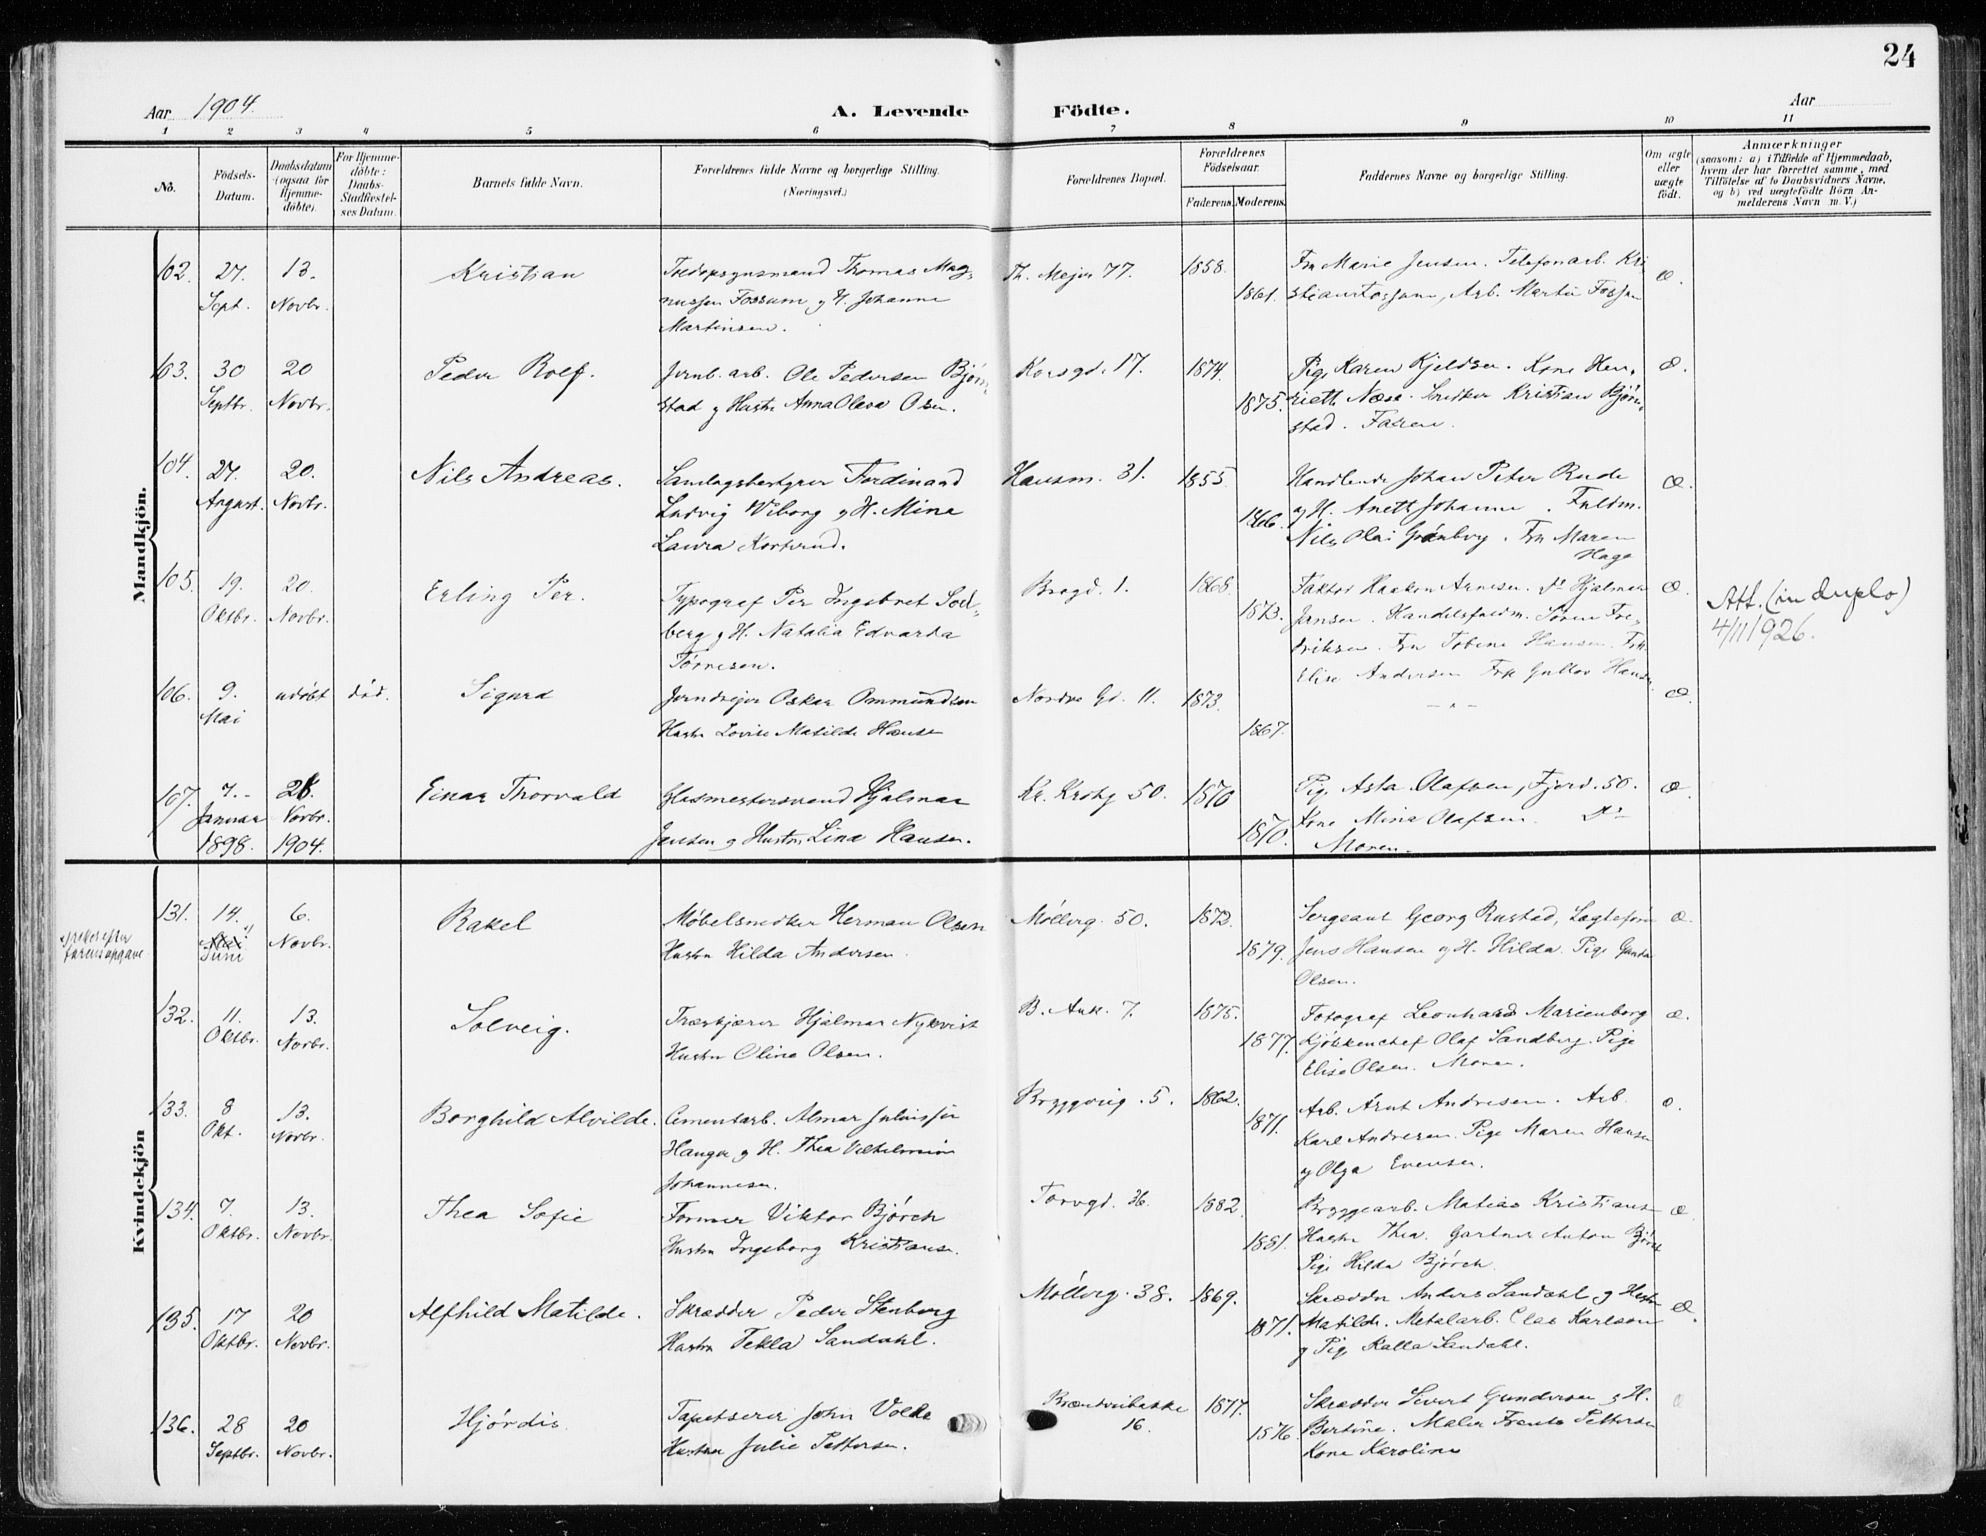 24
Aar 1904.
A. Levende Födte.
Aar
1 2 3 4 5 6 7 8 9 10 11
No.
Födsels-Datum.
Daabsdatum (ogsaa for Hjemme-døbte).
For Hjemme-døbte: Daabs-Stadfæstel-ses Datum.
Barnets fulde Navn.
Forældrenes fulde Navne og borgerlige Stilling. (Næringsvei.)
Forældrenes Bopæl.
Forældrenes Födselsaar.
Faderens. Moderens.
Faddernes Navne og borgerlige Stilling.
Om ægte eller uægte født.
Anmærkninger
(saasom: a) i Tilfælde af Hjemmedaab,
hvem der har forrettet samme, med
Tilföielse af to Daabsvidners Navne,
og b) ved uægtefödte Börn An-
melderens Navn m. V.)
Mandkjön.
102. 27. Sept. 13. Novbr. Kristian
Thomas Mag-
nussen Fossum og H. Johanne
Martinsen.
Th. Mejer 77. 1858. 1861.
Fru Marie Jensen. Telefonarb. Kri
stian Fossum, Arb. Martin Fossum
Æ.
103. 30 Septbr. 20 Novbr. Peder Rolf.
Jernb. arb. Ole Pedersen Bjørn-
stad og Hustru Anna Olava Olsen.
Korsgd. 17. 1874. 1875.
Pige Karen Kjeldsen. Kone Hen-
riette Næss. Snedker Kristian Bjørn-
stad. Faren.
Æ.
104. 27. August. 20. Novbr. Nils Andreas.
Ferdinand
Ludvig Wiborg og H. Mina
Laura Korterud.
Hausm. 31. 1855. 1866.
Handlende Johan Peter Rude
og H. Anette Johanne. Fuldm.
Nils Olai Grønberg. Fru Maren
Hage
Æ.
105. 19. Oktbr. 20. Novbr. Erling Per.
Typograf Per Ingebret Sod-
berg og H. Natalia Edvarda
Tørresen.
Brogd. 1. 1868. 1873.
Faktor Haakon Arnesen. Do Hjalmar
Jansen. Handelsfuldm. Søren Fre-
driksen. Fru Tobine Hansen. Frk
Elise Andersen Frk Gustav Hansen
Æ.
Att. (in duplo)
4/11 1926.
106. 9. Mai udøbt død. Sigurd
Jerndreier Oskar Ommundsen
Hustru Lovise Matilde Hansen
Nordre Gd. 11. 1873. 1867.
- " -
Æ.
107. 7. Januar 1898. 26. Novbr. 1904. Einar Thorvald
Glasmestersvend Hjalmar
Jensen og Hustru Lina Hansen.
Kr. Krohg 50. 1870 1870.
Pige Asta Olafsen, Fjord. 50.
Kone Mina Olafsen. Do
Moren.
Æ.
Kvindekjön
131. 14. Mai Juni 6. Novbr. Rakel
Møbelsnedker Herman Olsen
Hustru Hilda Andersen.
Møllerg. 50. 1872. 1879.
Sergeant Georg Rustad, Lægtefører
Jens Hansen og H. Hilda. Pige Gunda
Olsen.
Æ.
132. 11. Oktbr. 13. Novbr. Solveig.
Træskjærer Hjalmar Nykvist
Hustru Olina Olsen.
B. Ank. 7. 1875. 1877.
Fotograf Leonhard Marienborg
Kjøkkenchef Olaf Sandberg. Pige
Elise Olsen. Moren.
Æ.
133. 8 Okt. 13. Novbr. Borghild Alvilde.
Cementarb. Almar Juliussen
Hanger og H. Thea Vilhelmine
Johannesen.
Bryggerig. 5. 1862. 1871.
Arb. Arnt Andresen. Arb.
Karl Andresen. Pige Maren Hansen
og Olga Evensen.
Æ.
134. 7. Oktbr. 13. Novbr. Thea Sofie
Former Viktor Bjørch
Hustru Ingeborg Kristiansen.
Torvgd. 36. 1882. 1881.
Bryggearb. Matias Kristians
Hustru Thea. Gartner Anton Bjørch
Pige Hilda Bjørch.
Æ.
135. 17 Oktbr. 20 Novbr. Alfhild Matilde.
Skrædder Peder Stenborg
Hustru Tekla Sandahl.
Møllerg. 38. 1869. 1871.
Skrædder Anders Sandahl og Hustru
Matilde. Metalarb. Clas Karlson
og Pige Kalla Sandahl.
Æ.
136. 28 Septbr. 20 Novbr. Hjørdis.
Tapetserer John Volke
Hustru Julie Pettersen.
16. 1877. 1876
Skrædder Sivert Gundersen og H.
Bertine. Maler Frants Pettersen
Kone Karoline